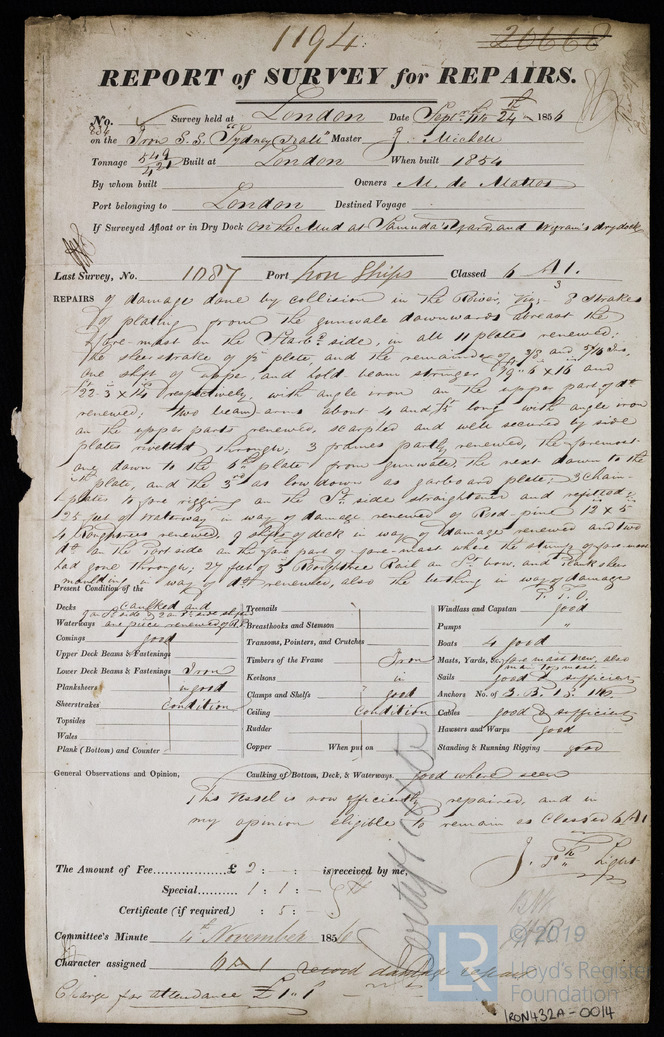 1194
20668
REPORT of SURVEY for REPAIRS.
No. Survey held at London Date Sept 24 1856
on the Iron S.S. "Sydney Hall" Master J. Michell
Tonnage 549 Built at London When built 1854
By whom built Owners M. de Mattos
Port belonging to London Destined Voyage
If Surveyed Afloat or in Dry Dock on the Mud at Samuda's Yard and Wigram's dry dock
Last Survey, No. 1087 Port Iron Ships Classed 6 A 1.
3
REPAIRS of damage done by collision in the River, viz: 8 Strakes
of plating from the gunwale downwards abreast the
fore-mast on the Starbd side, in all 11 plates renewed;
the sheerstrake of plate, and the remainder of 3/8 and 5/16 Ins.
one shift of upper, and hold beam stringer 6 x 16 and
22.3 x 14 respectively, with angle iron on the upper part of do
renewed; two beam arms about 4 and 5 ft long with angle iron
on the upper parts renewed, scarphed and well secured by side
plates rivetted through; 3 frames partly renewed, the foremost
one down to the 6th plate from gunwale, the next down to the
plate, and the 3rd as low down as garboard plate; 3 Chain-
plates to fore rigging on the St side straightened and refitted;
25 feet of Waterway in way of damage renewed of Red-pine 12 x 5
4 renewed, 9 shifts of deck in way of damage renewed and two
do on the Port side on the fore part of fore-mast where the stump of fore-mast
had gone through; 27 feet of Rail on St bow, and Planksheer
moulding in way of do renewed, also the berthing in way of damage
P. T. O.
Present Condition of the
Decks caulked and
Waterways are piece renewed of R.P.
Comings good
Upper Deck Beams & Fastenings
Lower Deck Beams & Fastenings Iron
Planksheers in good
Sheerstrakes Condition
Topsides
Wales
Plank (Bottom) and Counter
Treenails
Breasthooks and Stemson
Transoms, Pointers, and Crutches
Timbers of the Frame Iron
Keelsons in
Clamps and Shelfs good
Ceiling Condition
Rudder
Copper When put on
Windlass and Capstan good
Pumps "
Boats 4 good
Masts, Yards, &c. fore mast new, also
main top mast
Sails good & sufficient
Anchors No. of 3. B. 1 S.
Cables good & sufficient
Hawsers and Warps good
Standing & Running Rigging good
General Observations and Opinion, Caulking of Bottom, Deck, & Waterways. good where seen
This Vessel is now efficiently repaired, and in
my opinion eligible to remain as Classed 6 A 1
J. H. Light
The Amount of Fee £ 2 : - : - is received by me,
Special 1 : 1 : -
Certificate (if required) : 5 : -
Committee's Minute 4th November 1856
Character assigned 6 A 1 record damage repairs
Charge for attendance £1.1
© 2019
LR
Lloyd's Register
Foundation
IRON432A-0014